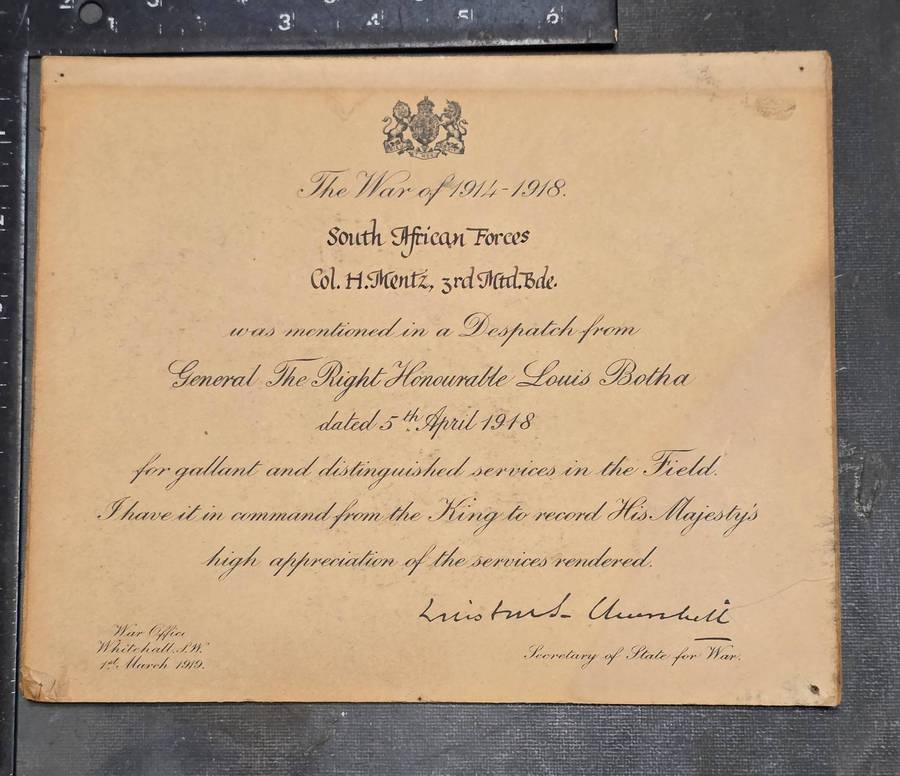 2 3
1 3 4 5 6
The War of 1914-1918.
South African Forces
Col. H. Mentz, 3rd Mtd. Bde.
was mentioned in a Despatch from
General The Right Honourable Louis Botha
dated 5th April 1918
for gallant and distinguished services in the Field.
I have it in command from the King to record His Majesty's
high appreciation of the services rendered.
Winston S. Churchill
War Office
Whitehall. S.W.
1st March 1919.
Secretary of State for War.